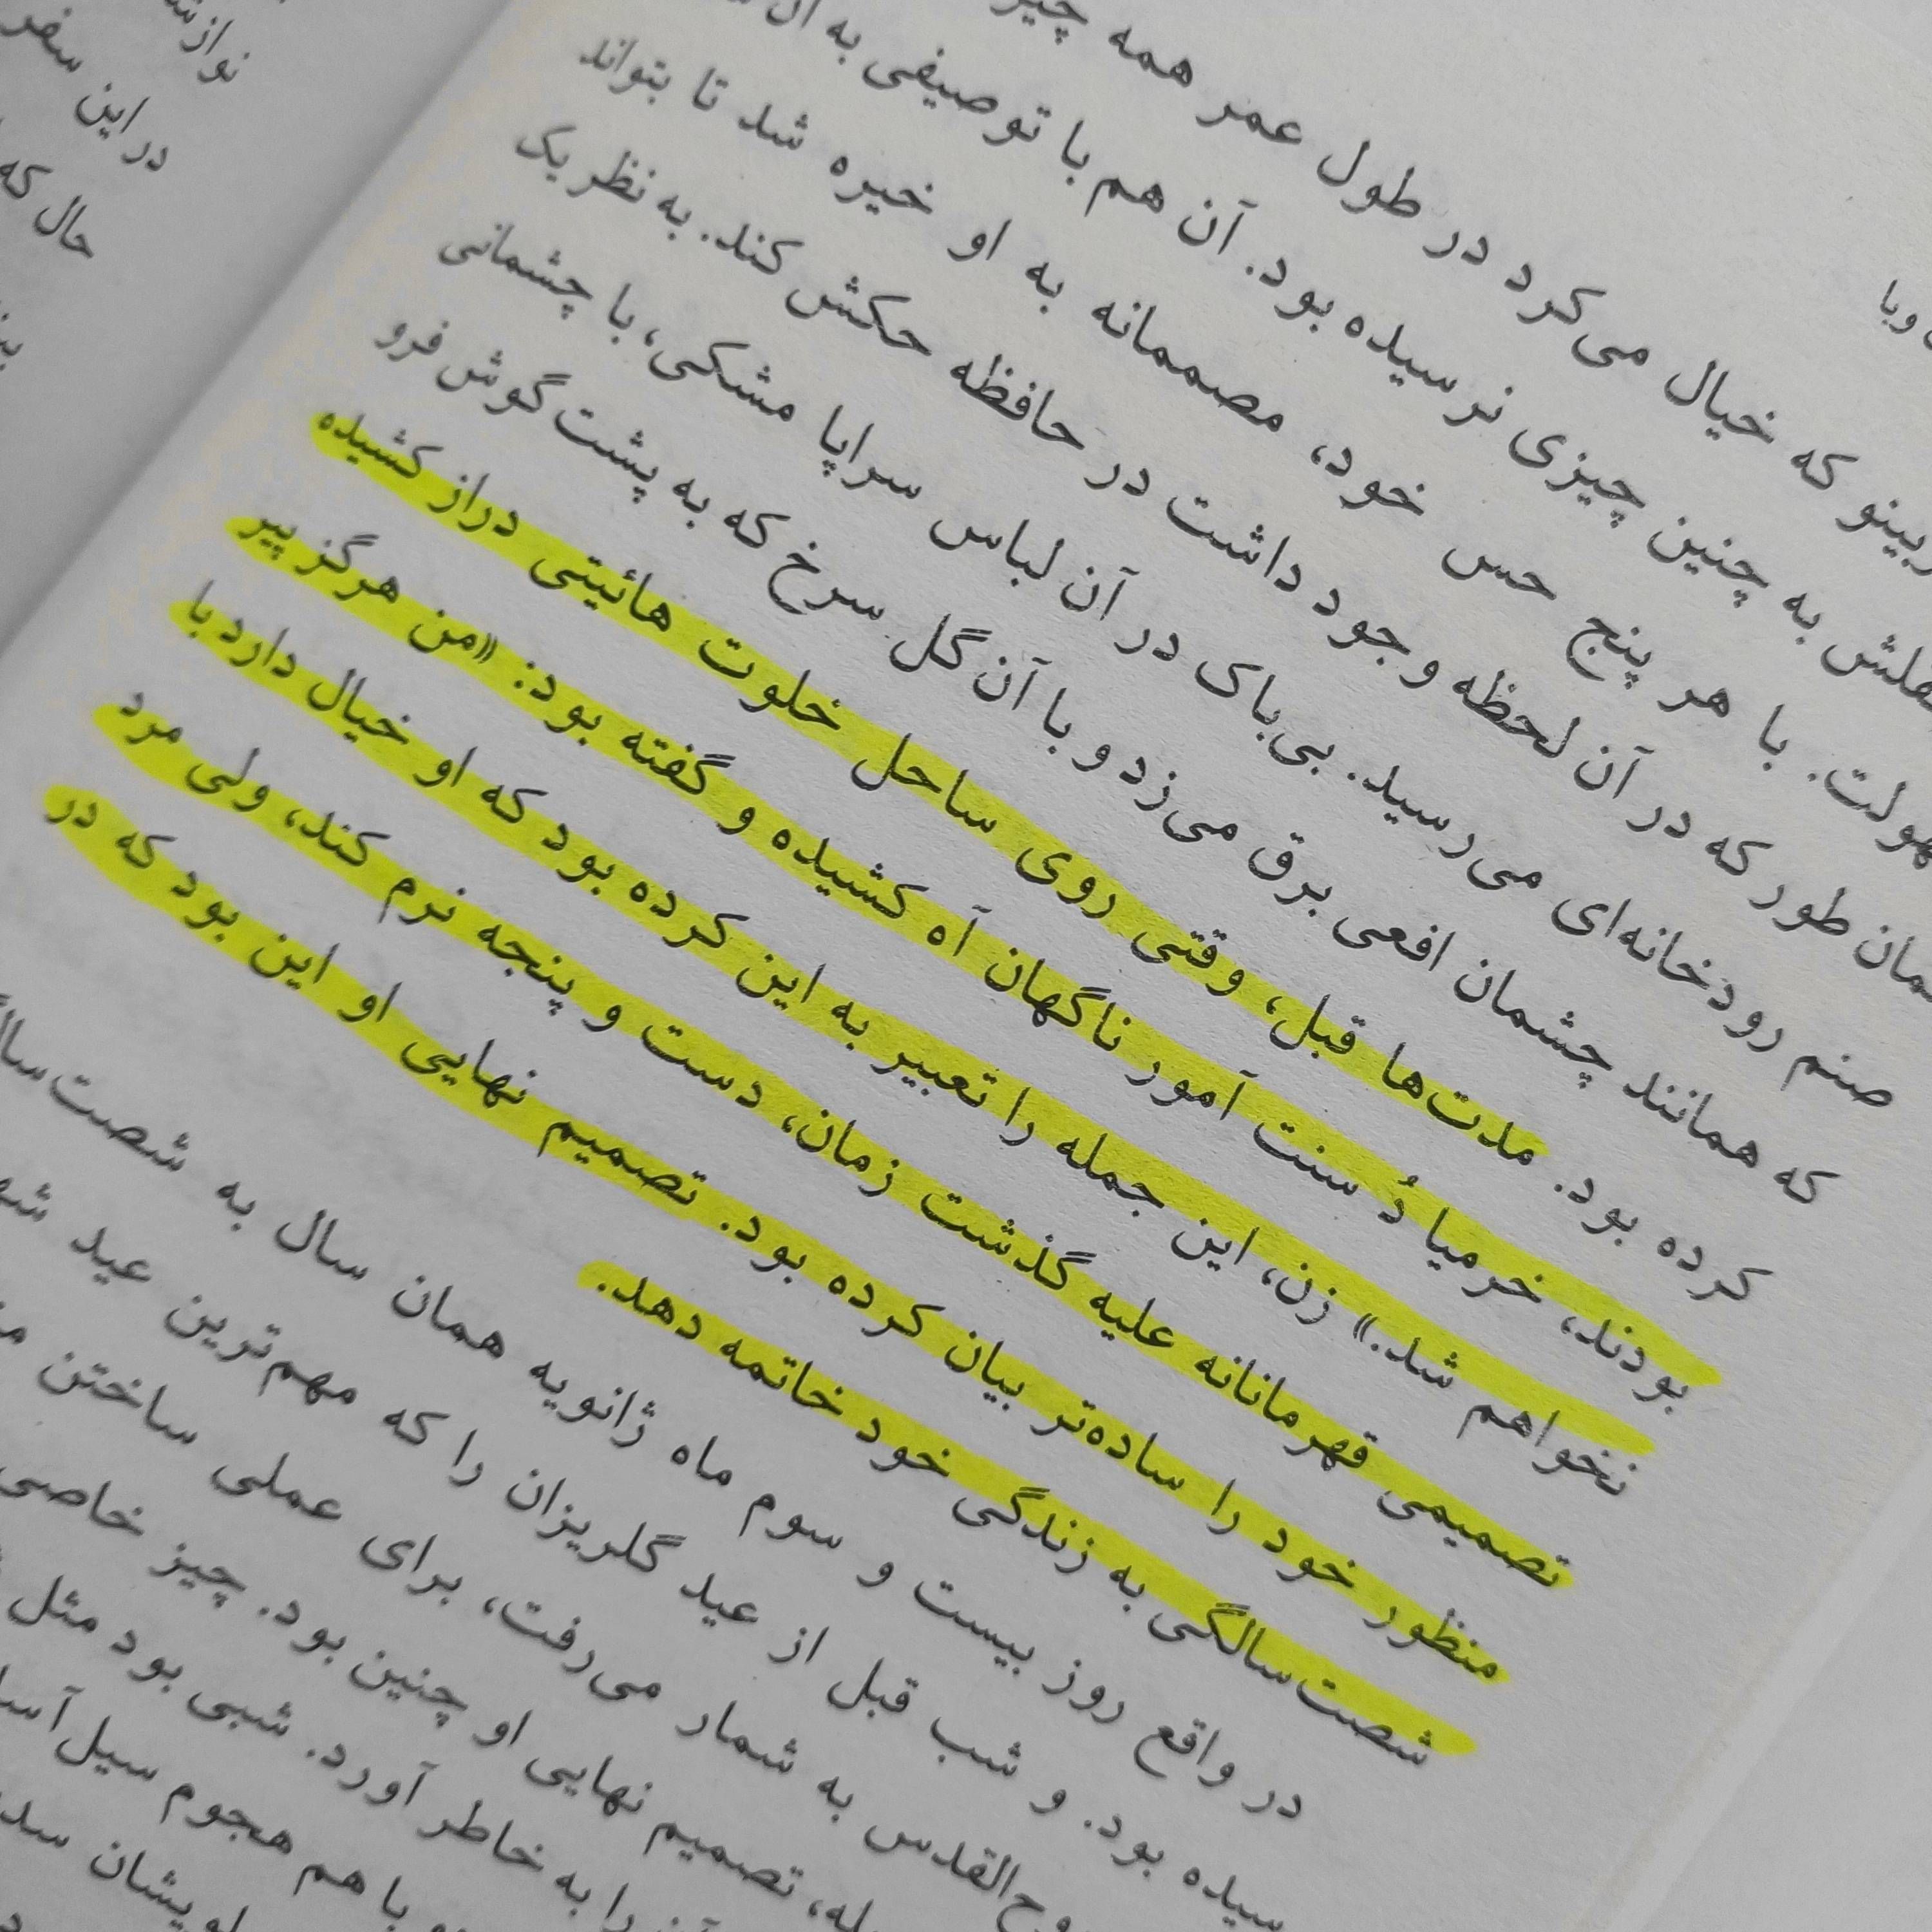 نوازش
در این سفر
حال که
و با
همه چیز
ربینو که خیال می‌کرد در طول عمر
به چنین چیزی نرسیده بود. آن هم با توصیفی به آن
هولت. با هر پنج حس خود، مصممانه به او خیره شد تا بتواند
همان طور که در آن لحظه وجود داشت در حافظه حکش کند. به نظر یک
صنم رودخانه‌ای می‌رسید. بی‌باک در آن لباس سراپا مشکی، با چشمانی
که همانند چشمان افعی برق می‌زد و با آن گل سرخ که به پشت گوش فرو
کرده بود. مدت‌ها قبل، وقتی روی ساحل خلوت هائیتی دراز کشیده
بودند، خرمیا دُ سنت آمور ناگهان آه کشیده و گفته بود: «من هرگز پیر
نخواهم شد.» زن، این جمله را تعبیر به این کرده بود که او خیال دارد با
تصمیمی قهرمانانه علیه گذشت زمان، دست و پنجه نرم کند، ولی مرد
منظور خود را ساده‌تر بیان کرده بود. تصمیم نهایی او این بود که در
شصت‌سالگی به زندگی خود خاتمه دهد.
در واقع روز بیست و سوم ماه ژانویه همان سال به شصت‌سالگی
سیده بود. و شب قبل از عید گلریزان را که مهم‌ترین عید
روح‌القدس به شمار می‌رفت، برای عملی ساختن
تصمیم نهایی او چنین بود. چیز خاصی
را به خاطر آورد. شبی بود مثل
با هم هجوم سیل‌آسا